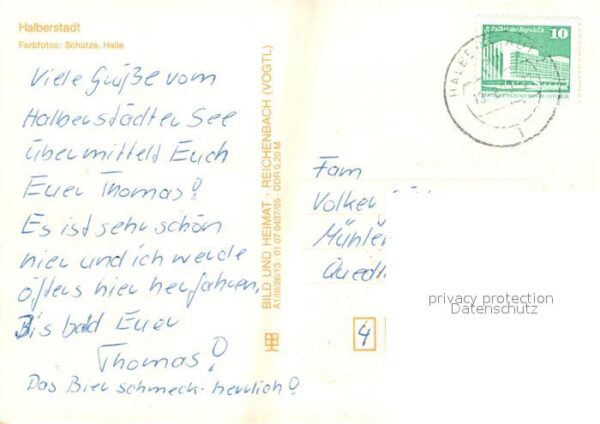 Halberstadt
Farbfotos: Schütze, Halle
Viele Grüße vom
Halberstädter See
übermittelt Euch
Euer Thomas!
Es ist sehr schön
hier und ich werde
öfters hier herfahren,
Bis bald Euer
Thomas!
Das Bier schmeckt herrlich!
BILD UND HEIMAT · REICHENBACH (VOGTL)
A1/III/26/13 · 01 07 0437/05 · DDR 0,20 M
10
HALBE
Fam
Volker
Mühlen
Quedl
4
privacy protection
Datenschutz